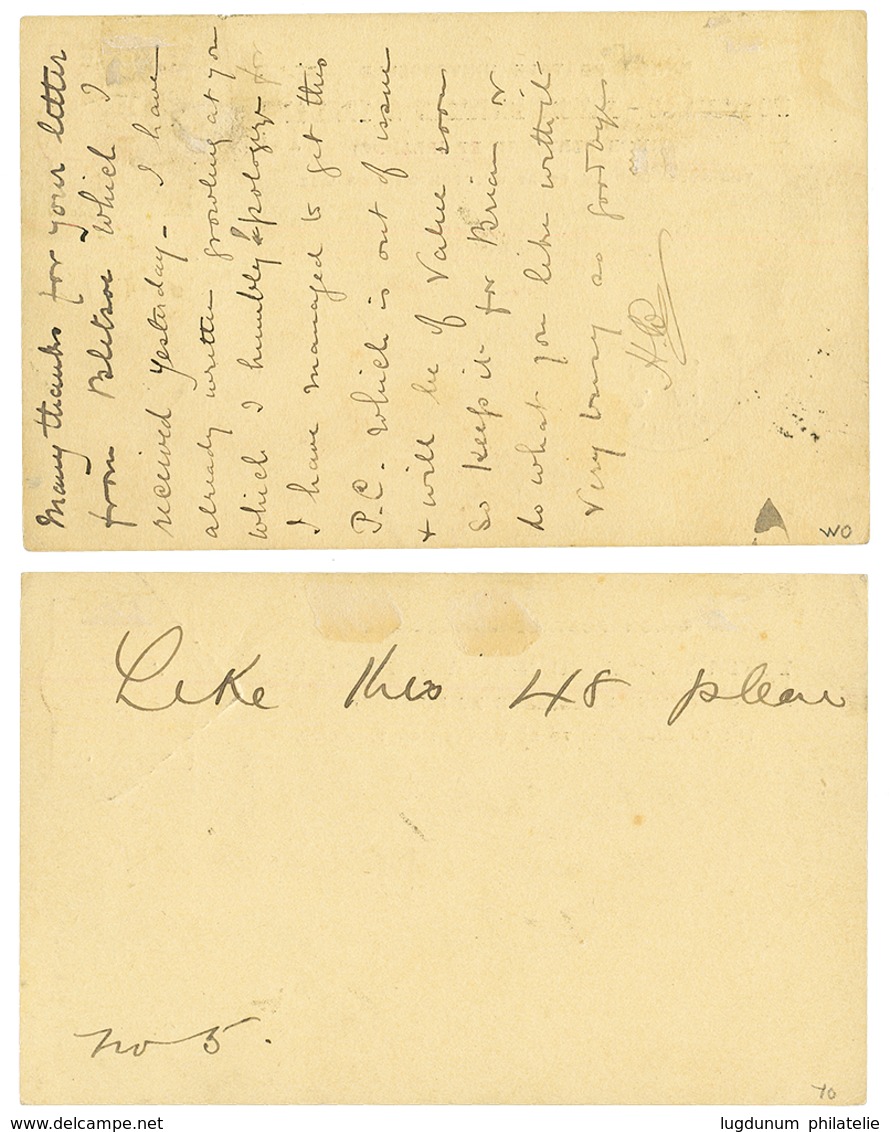 Many thanks for your letter
from Bletsoe which I
received yesterday - I have
already written growling at you
which I humbly apologize for
I have managed to get this
P.C. which is out of issue
& will be of Value soon
so keep it for Brian or
do what you like with it
Very busy so goodbye
WO
Like this 48 please
No 5.
70
www.delcampe.net
lugdunum philatelie